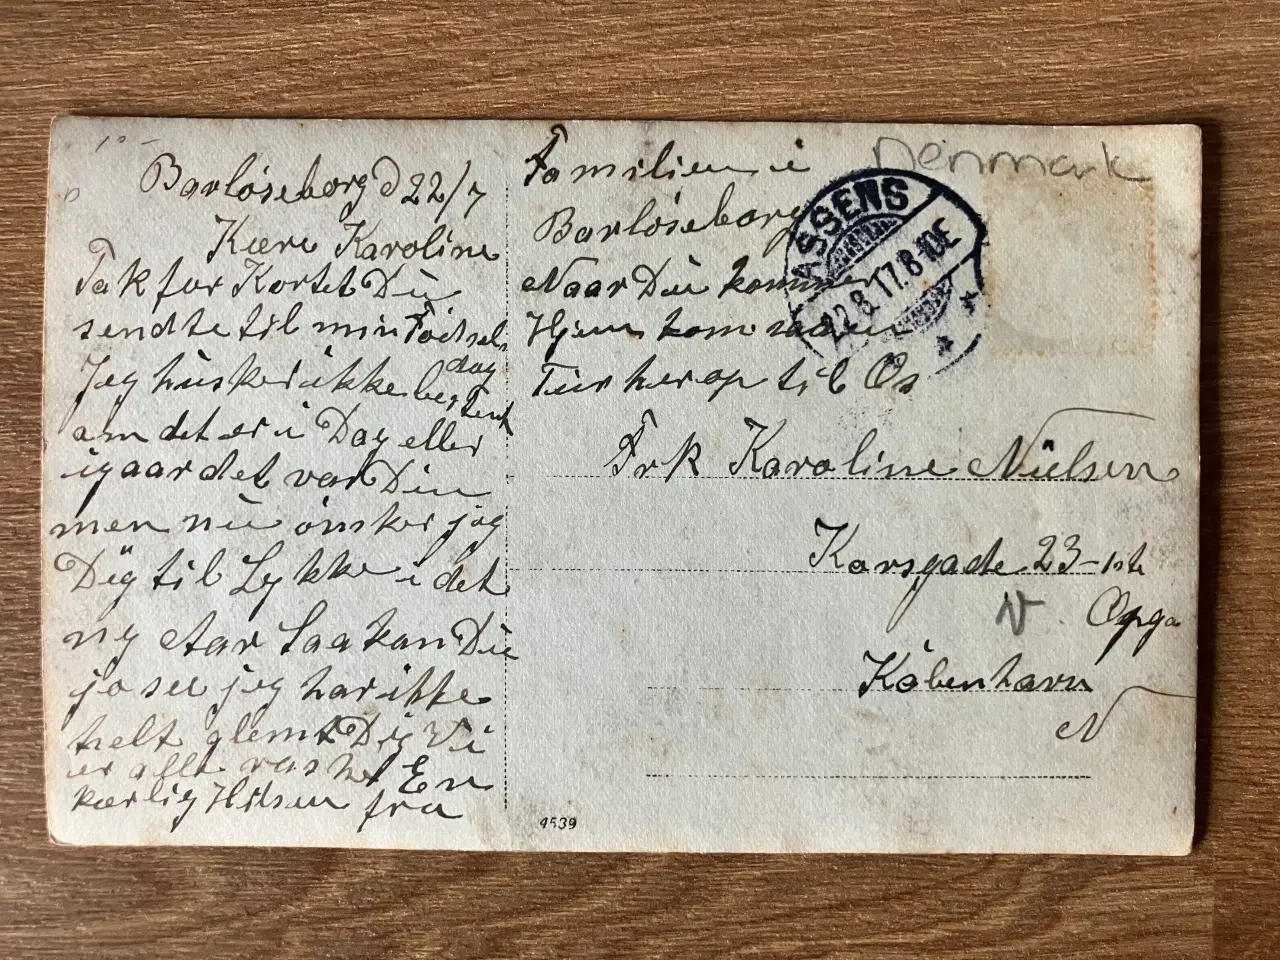 Barløseborg d 22/7
Kære Karoline
Tak for Kortet Du
sendte til min Fødsels
dag
Jeg husker ikke bestemt
om det er i Dag eller
igaar det var Din
men nu ønsker jeg
Dig til Lykke i det
ny Aar Saa kan Du
jo se jeg har ikke
helt glemt Dig Vi
er alle raske En
kærlig Hilsen fra
Familien i
Barløseborg
Naar Du kommer
Hjem kom saa en
Tur herop til Os
Denmark
ASSENS
22.8.17.8-10E
Frk Karoline Nielsen
Korsgade 23-1ste
N Opga
København
N
4539